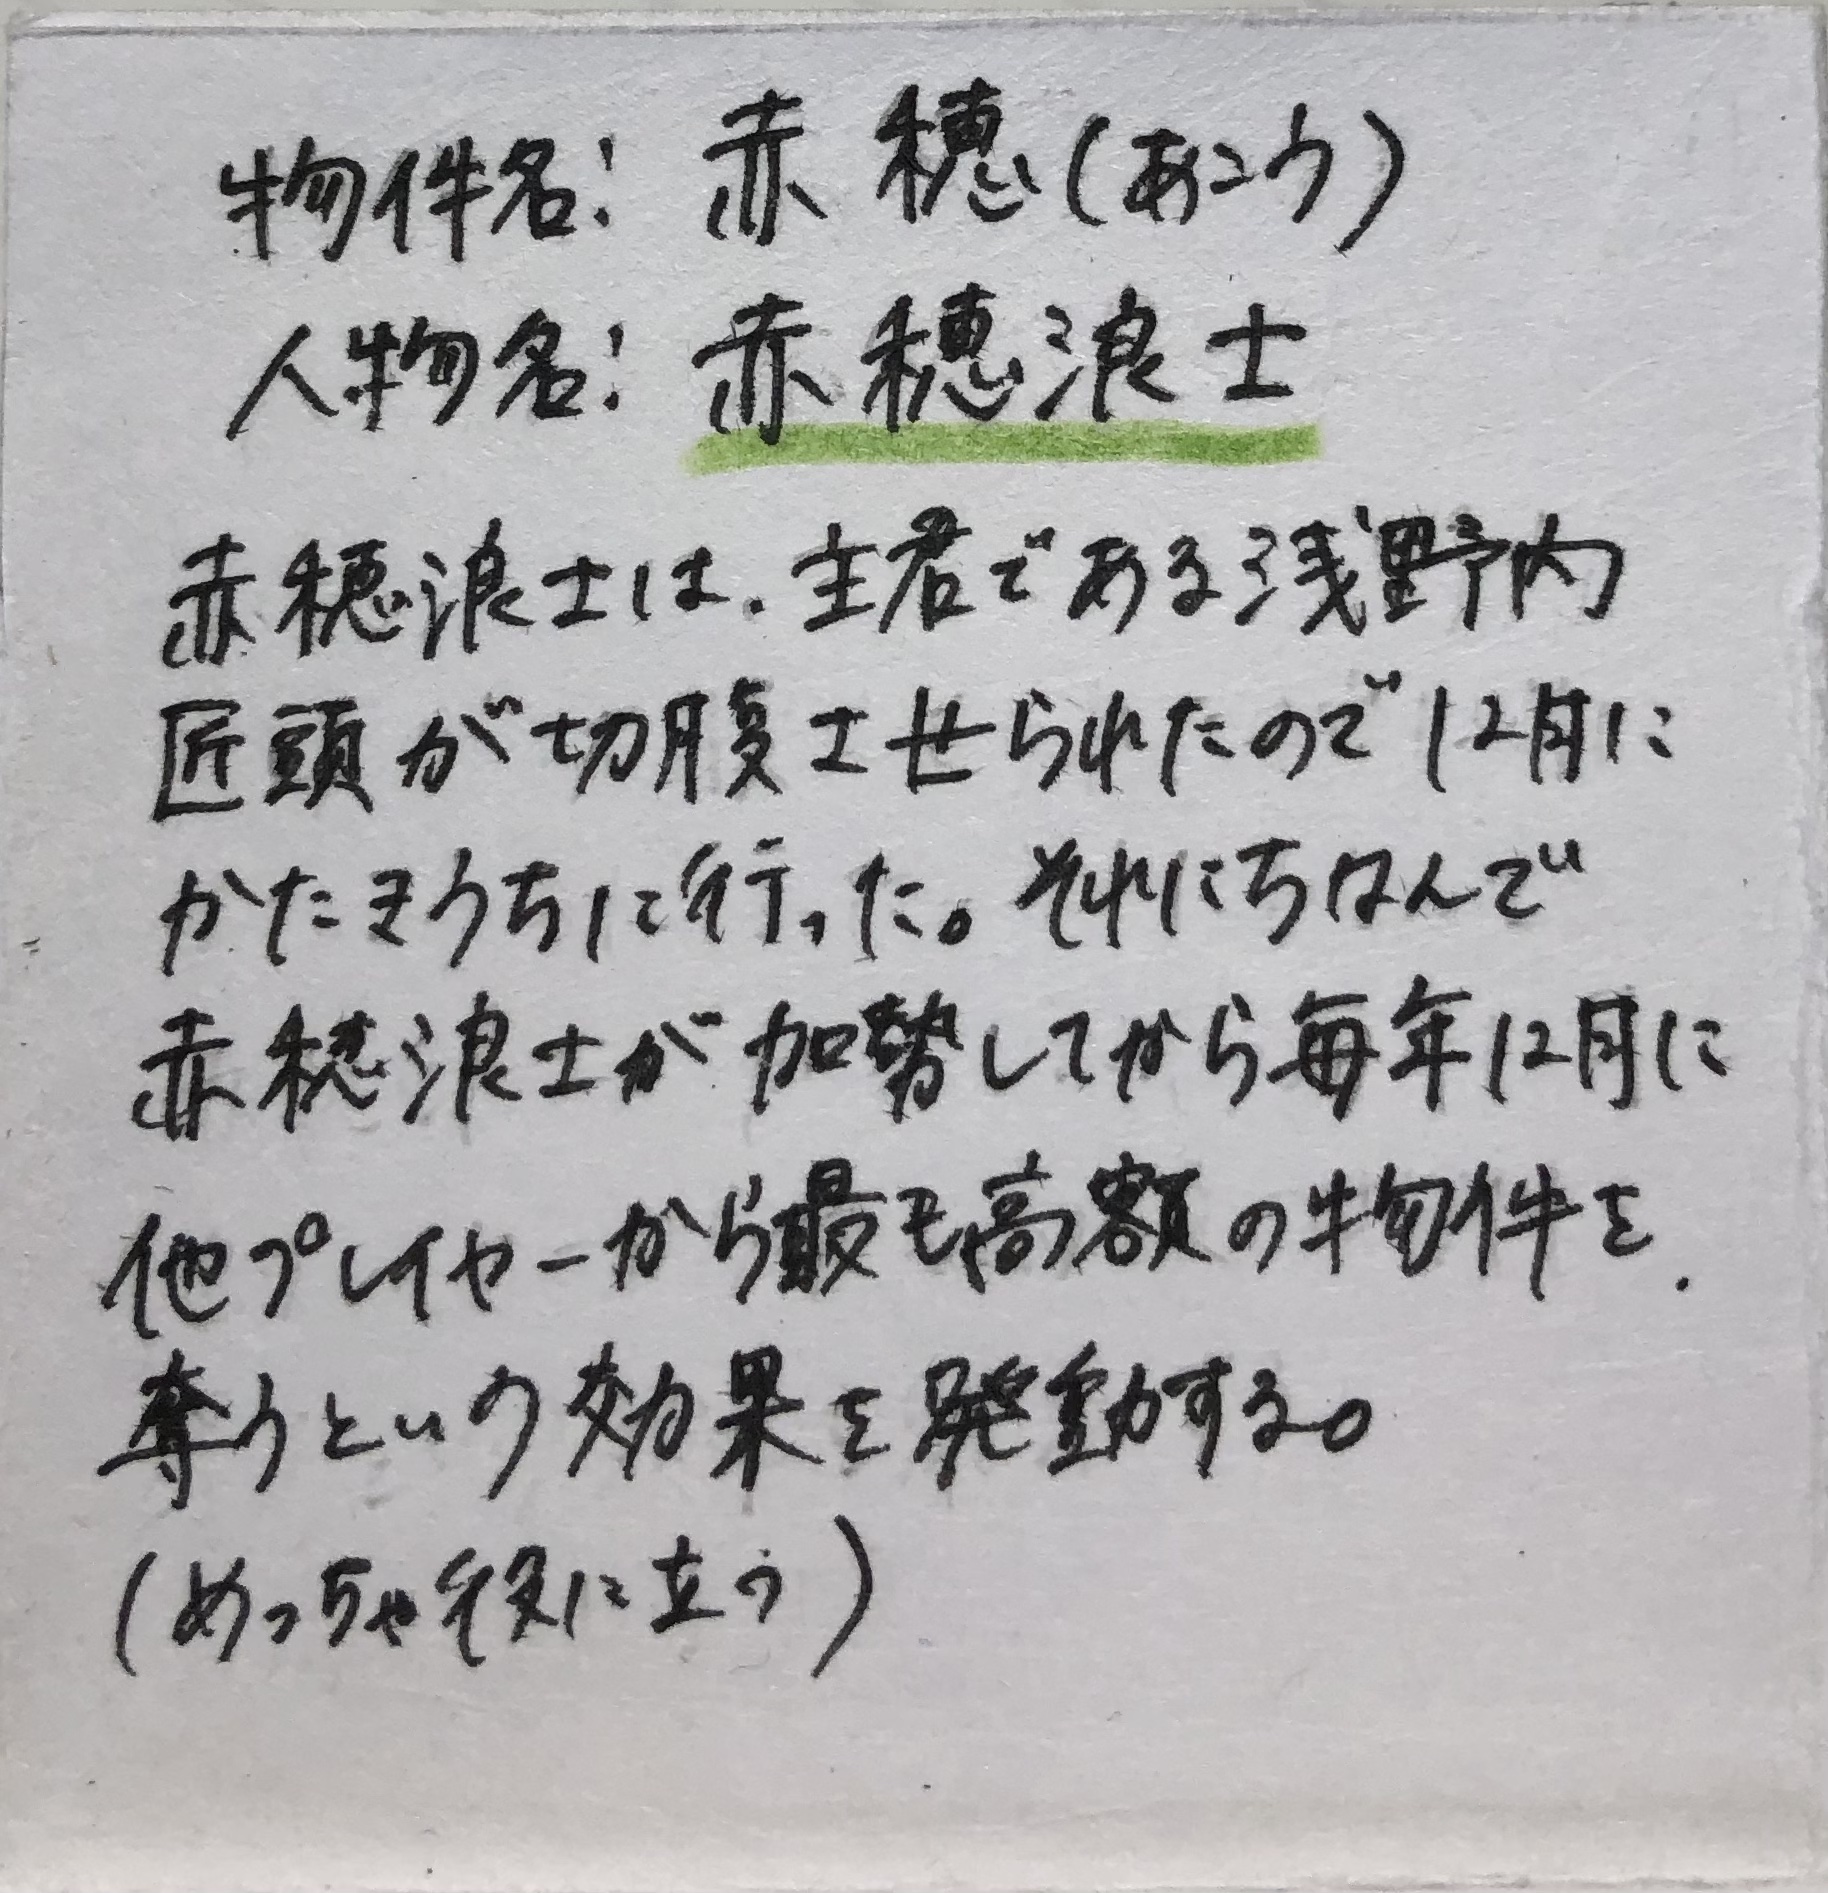 物件名: 赤穂(あこう)
人物名: 赤穂浪士
赤穂浪士は、主君である浅野内
匠頭が切腹させられたので12月に
かたきうちに行った。それにちなんで
赤穂浪士が加勢してから毎年12月に
他プレイヤーから最も高額の物件を、
奪うという効果を発動する。
(めっちゃ役に立つ)